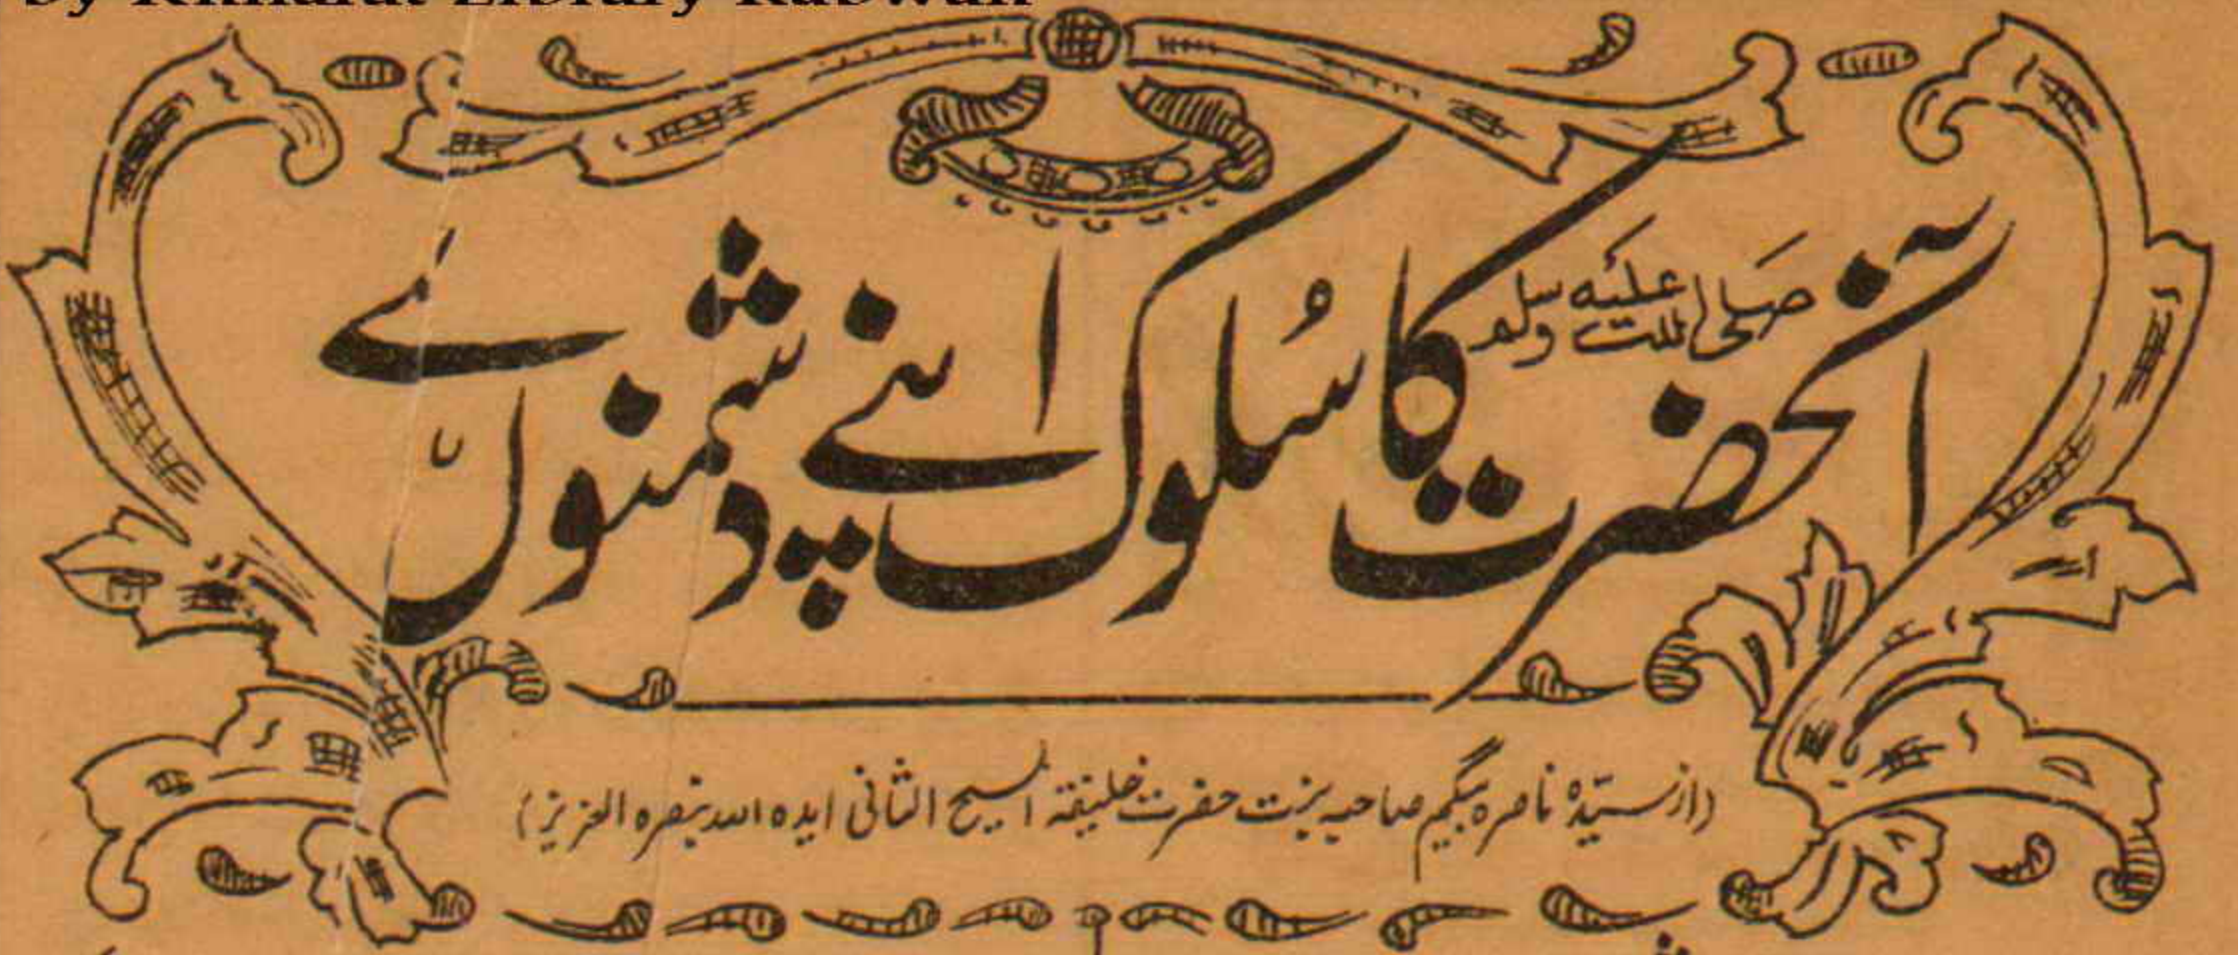 by Khilafat Library Rabwah
آنحضرت صلی اللہ علیہ وسلم کا سُلوک اپنے دشمنوں سے
(از سیّدہ ناصرہ بیگم صاحبہ بنت حضرت خلیفۃ المسیح الثانی ایدہ اللہ بنصرہ العزیز)